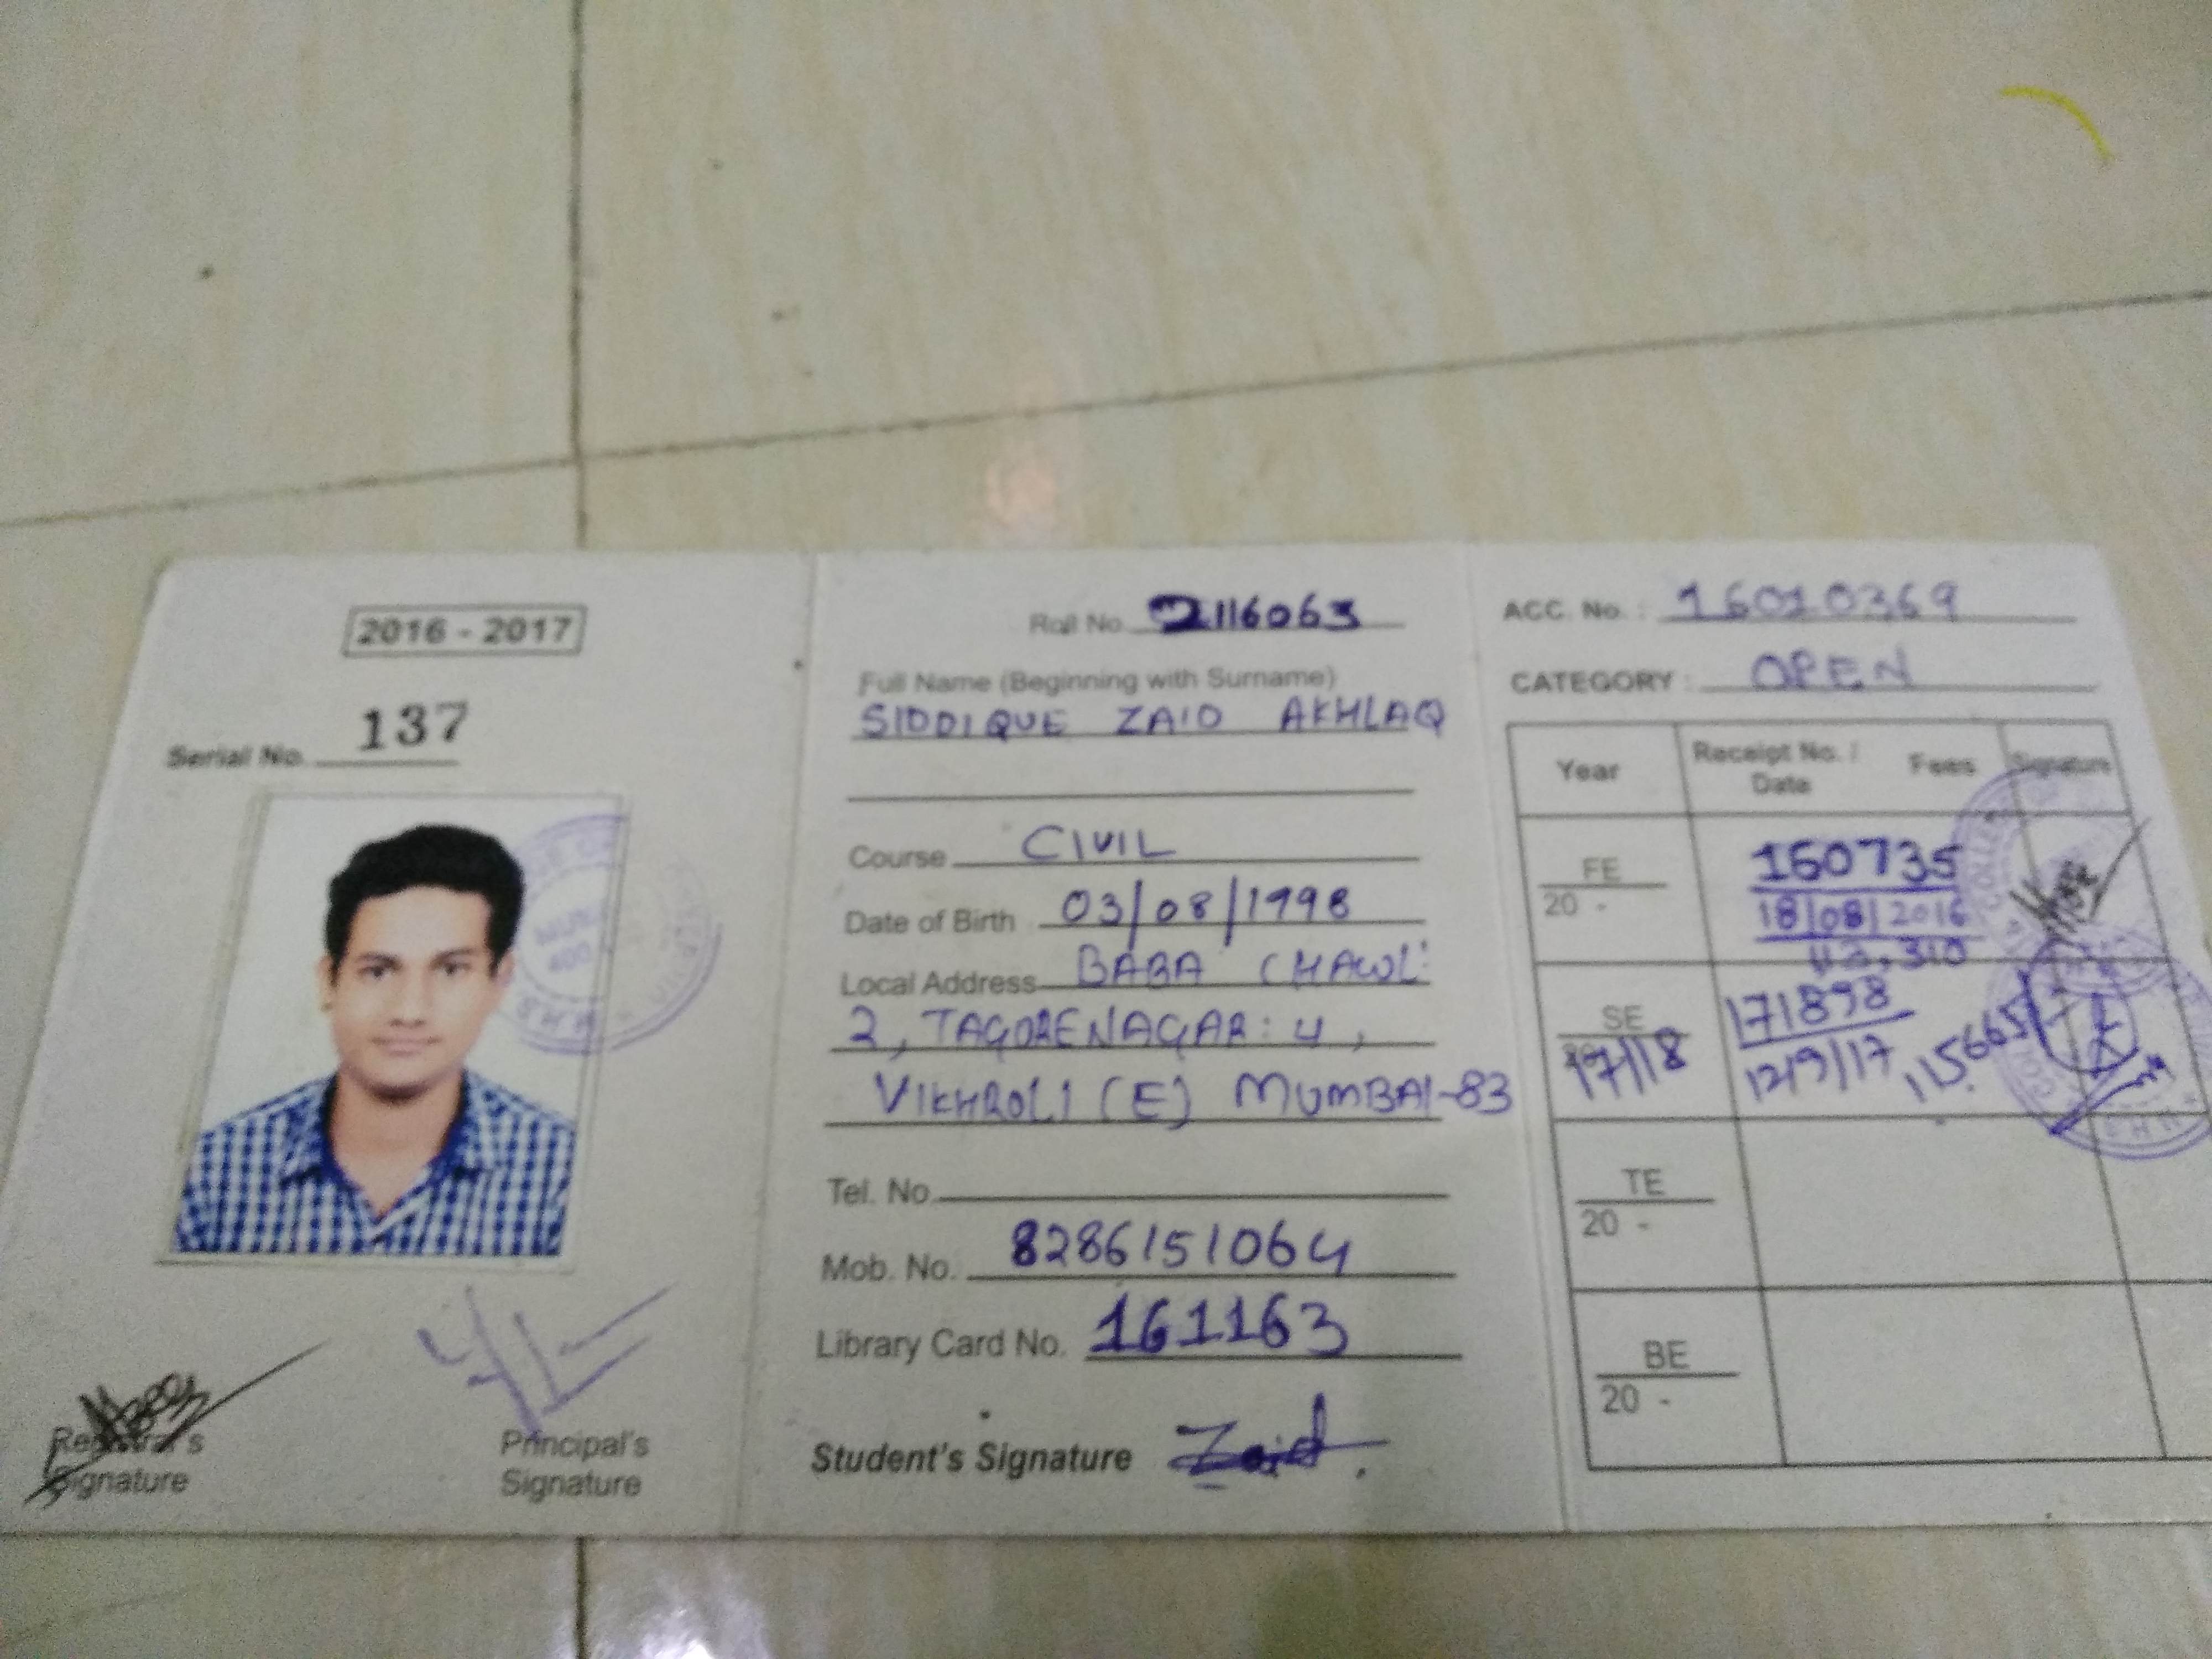 2016 - 2017
Serial No. 137
Registrar's
Signature
Principal's
Signature
Roll No. 2116063
Full Name (Beginning with Surname)
SIDDIQUE ZAID AKHLAQ
Course CIVIL
Date of Birth 03/08/1998
Local Address BABA CHAWL:
2, TAGORENAGAR: 4,
VIKHROLI (E) MUMBAI-83
Tel. No.
Mob. No. 8286151064
Library Card No. 161163
Student's Signature Zaid.
ACC. No. : 16010369
CATEGORY : OPEN
Year Receipt No. / Date Fees Signature
FE
20 -
160735
18/08/2016
SE
17/18
171898
12/9/17 115,665
TE
20 -
BE
20 -